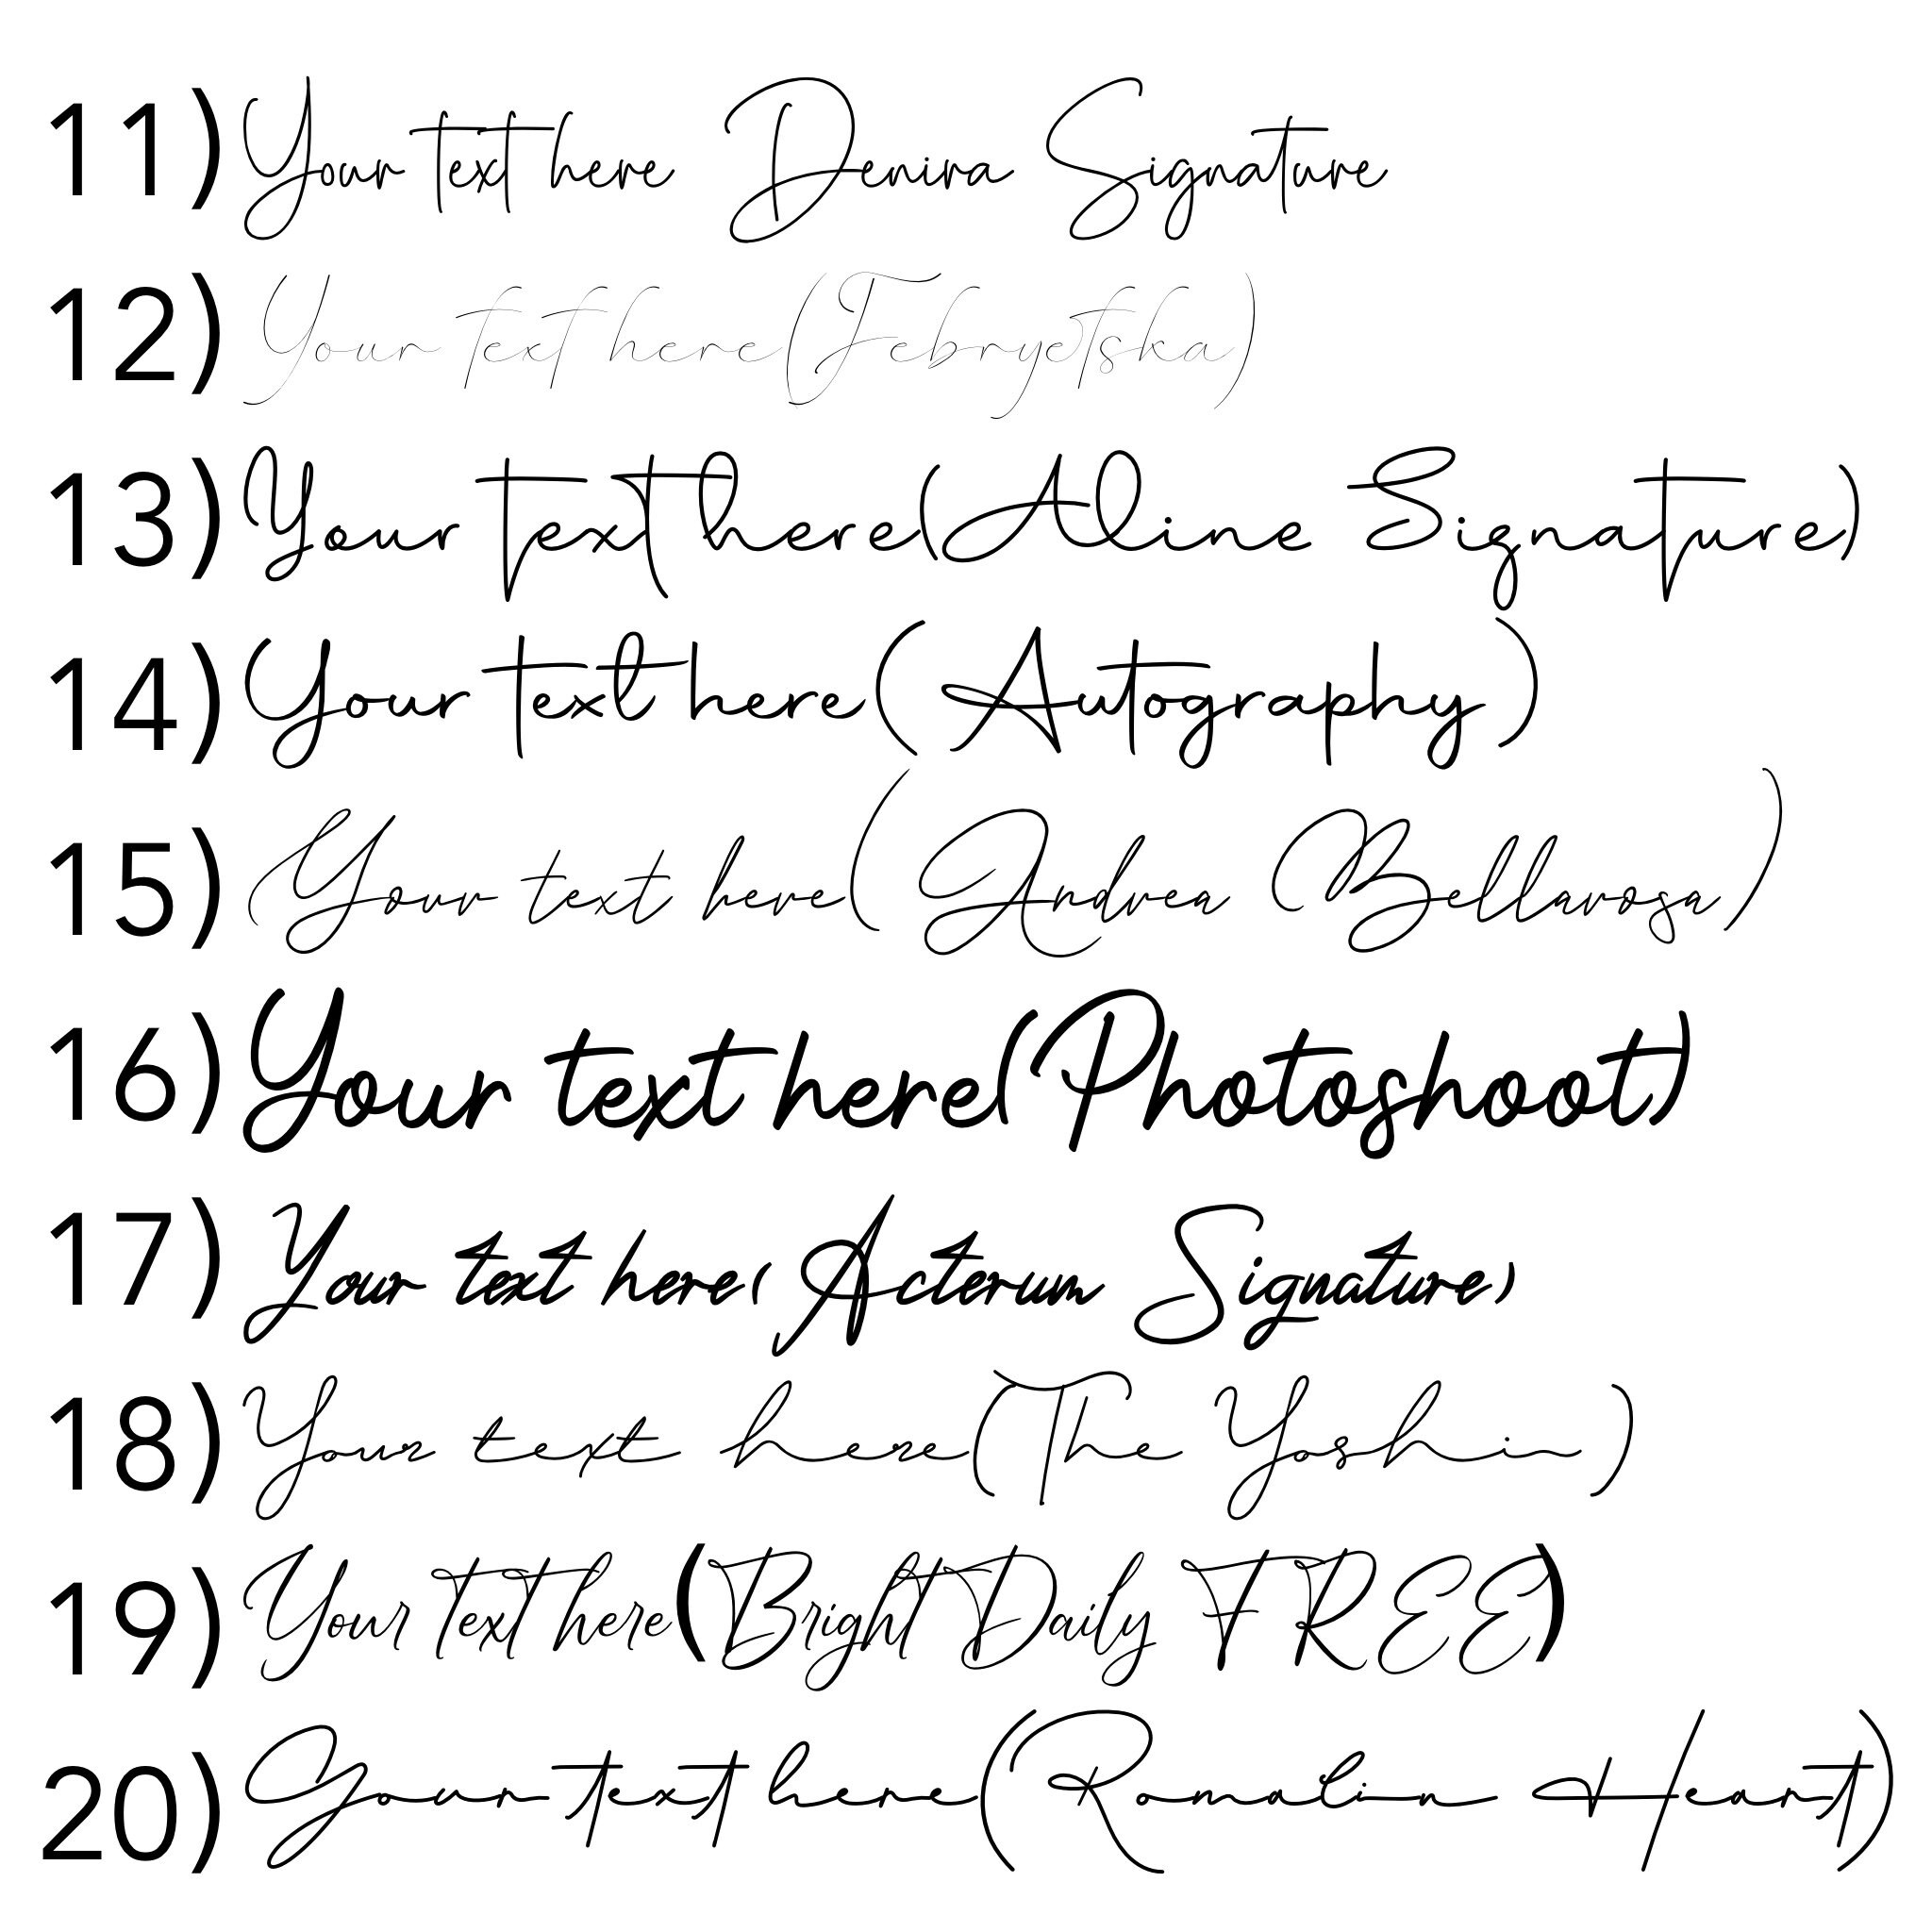 11) Your text here Denira Signature
12) Your text here (Febryetska)
13) Your text here (Aline Signature)
14) Your text here (Autography)
15) Your text here (Andrea Bellarosa)
16) Your text here (Photoshoot)
17) Your text here (Acterum Signature)
18) Your text here (The Yoshi)
19) Your text here (Bright Daily FREE)
20) Your text here (Romalin Heart)